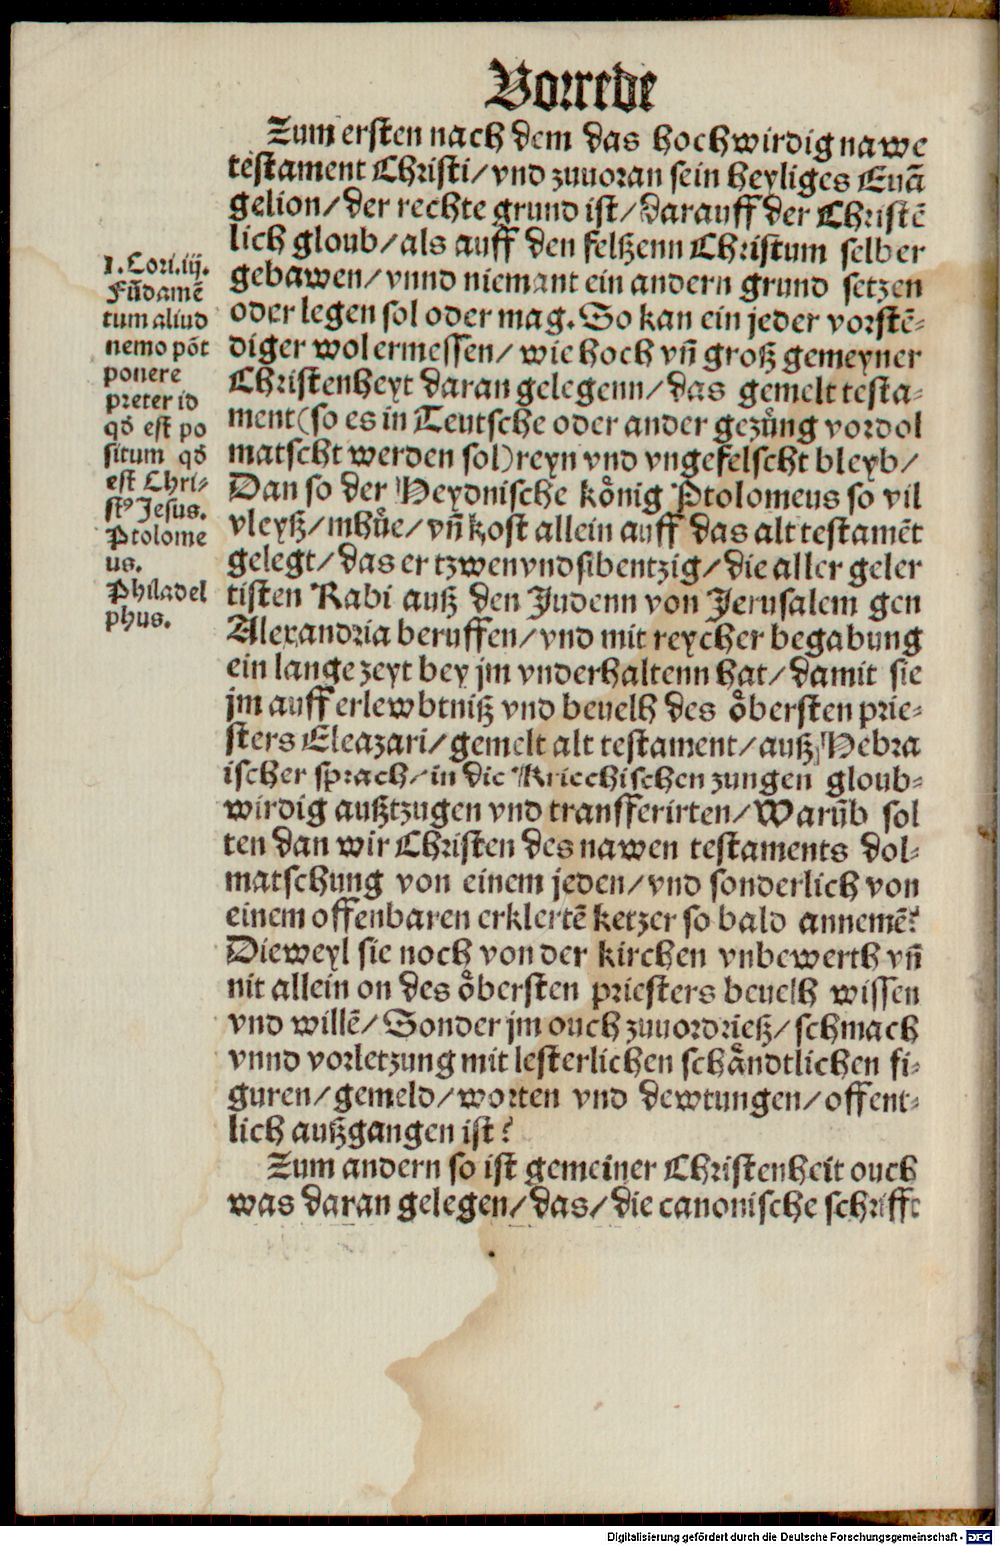 Vorrede
Zum ersten nach dem das hochwirdig nawe
testament Christi/ vnd zuuoran sein heyliges Euã
gelion/ der rechte grund ist/ darauff der Christẽ
lich gloub/ als auff den feltzenn Christum selber
gebawen/ vnnd niemant ein andern grund setzen
oder legen sol oder mag. So kan ein jeder vorstẽ-
diger wol ermessen/ wie hoch vñ groß gemeyner
Christenheyt daran gelegenn/ das gemelt testa-
ment (so es in Teutsche oder ander gezůng vordol
matscht werden sol) reyn vnd vngefelscht bleyb/
Dan so der Heydnische kőnig Ptolomeus so vil
vleyß/ mhůe/ vñ kost allein auff das alt testamẽt
gelegt/ das er tzwenvndsibentzig/ die aller geler
tisten Rabi auß den Judenn von Jerusalem gen
Alexandria beruffen/ vnd mit reycher begabung
ein lange zeyt bey jm vnderhaltenn hat/ damit sie
jm auff erlewbtniß vnd beuelh des őbersten prie-
sters Eleazari/ gemelt alt testament/ auß Hebra
ischer sprach/ in die Kriechischen zungen gloub-
wirdig außtzugen vnd transferirten/ Warũb sol
ten dan wir Christen des nawen testaments dol-
matschung von einem jeden/ vnd sonderlich von
einem offenbaren erklertẽ ketzer so bald annemẽ?
Dieweyl sie noch von der kirchen vnbewerth vñ
nit allein on des őbersten priesters beuelh wissen
vnd willẽ/ Sonder jm ouch zuuordrieß/ schmach
vnnd vorletzung mit lesterlichen schåndtlichen fi-
guren/ gemeld/ worten vnd dewtungen/ offent-
lich außgangen ist?
Zum andern so ist gemeiner Christenheit ouch
was daran gelegen/ das/ die canonische schrifft
1. Cori. iij.
Fũdamẽ
tum aliud
nemo põt
ponere
preter id
qđ est po
situm qđ
est Chri-
stꝰ Jesus.
Ptolome
us.
Philadel
phus.
Digitalisierung gefördert durch die Deutsche Forschungsgemeinschaft - DFG